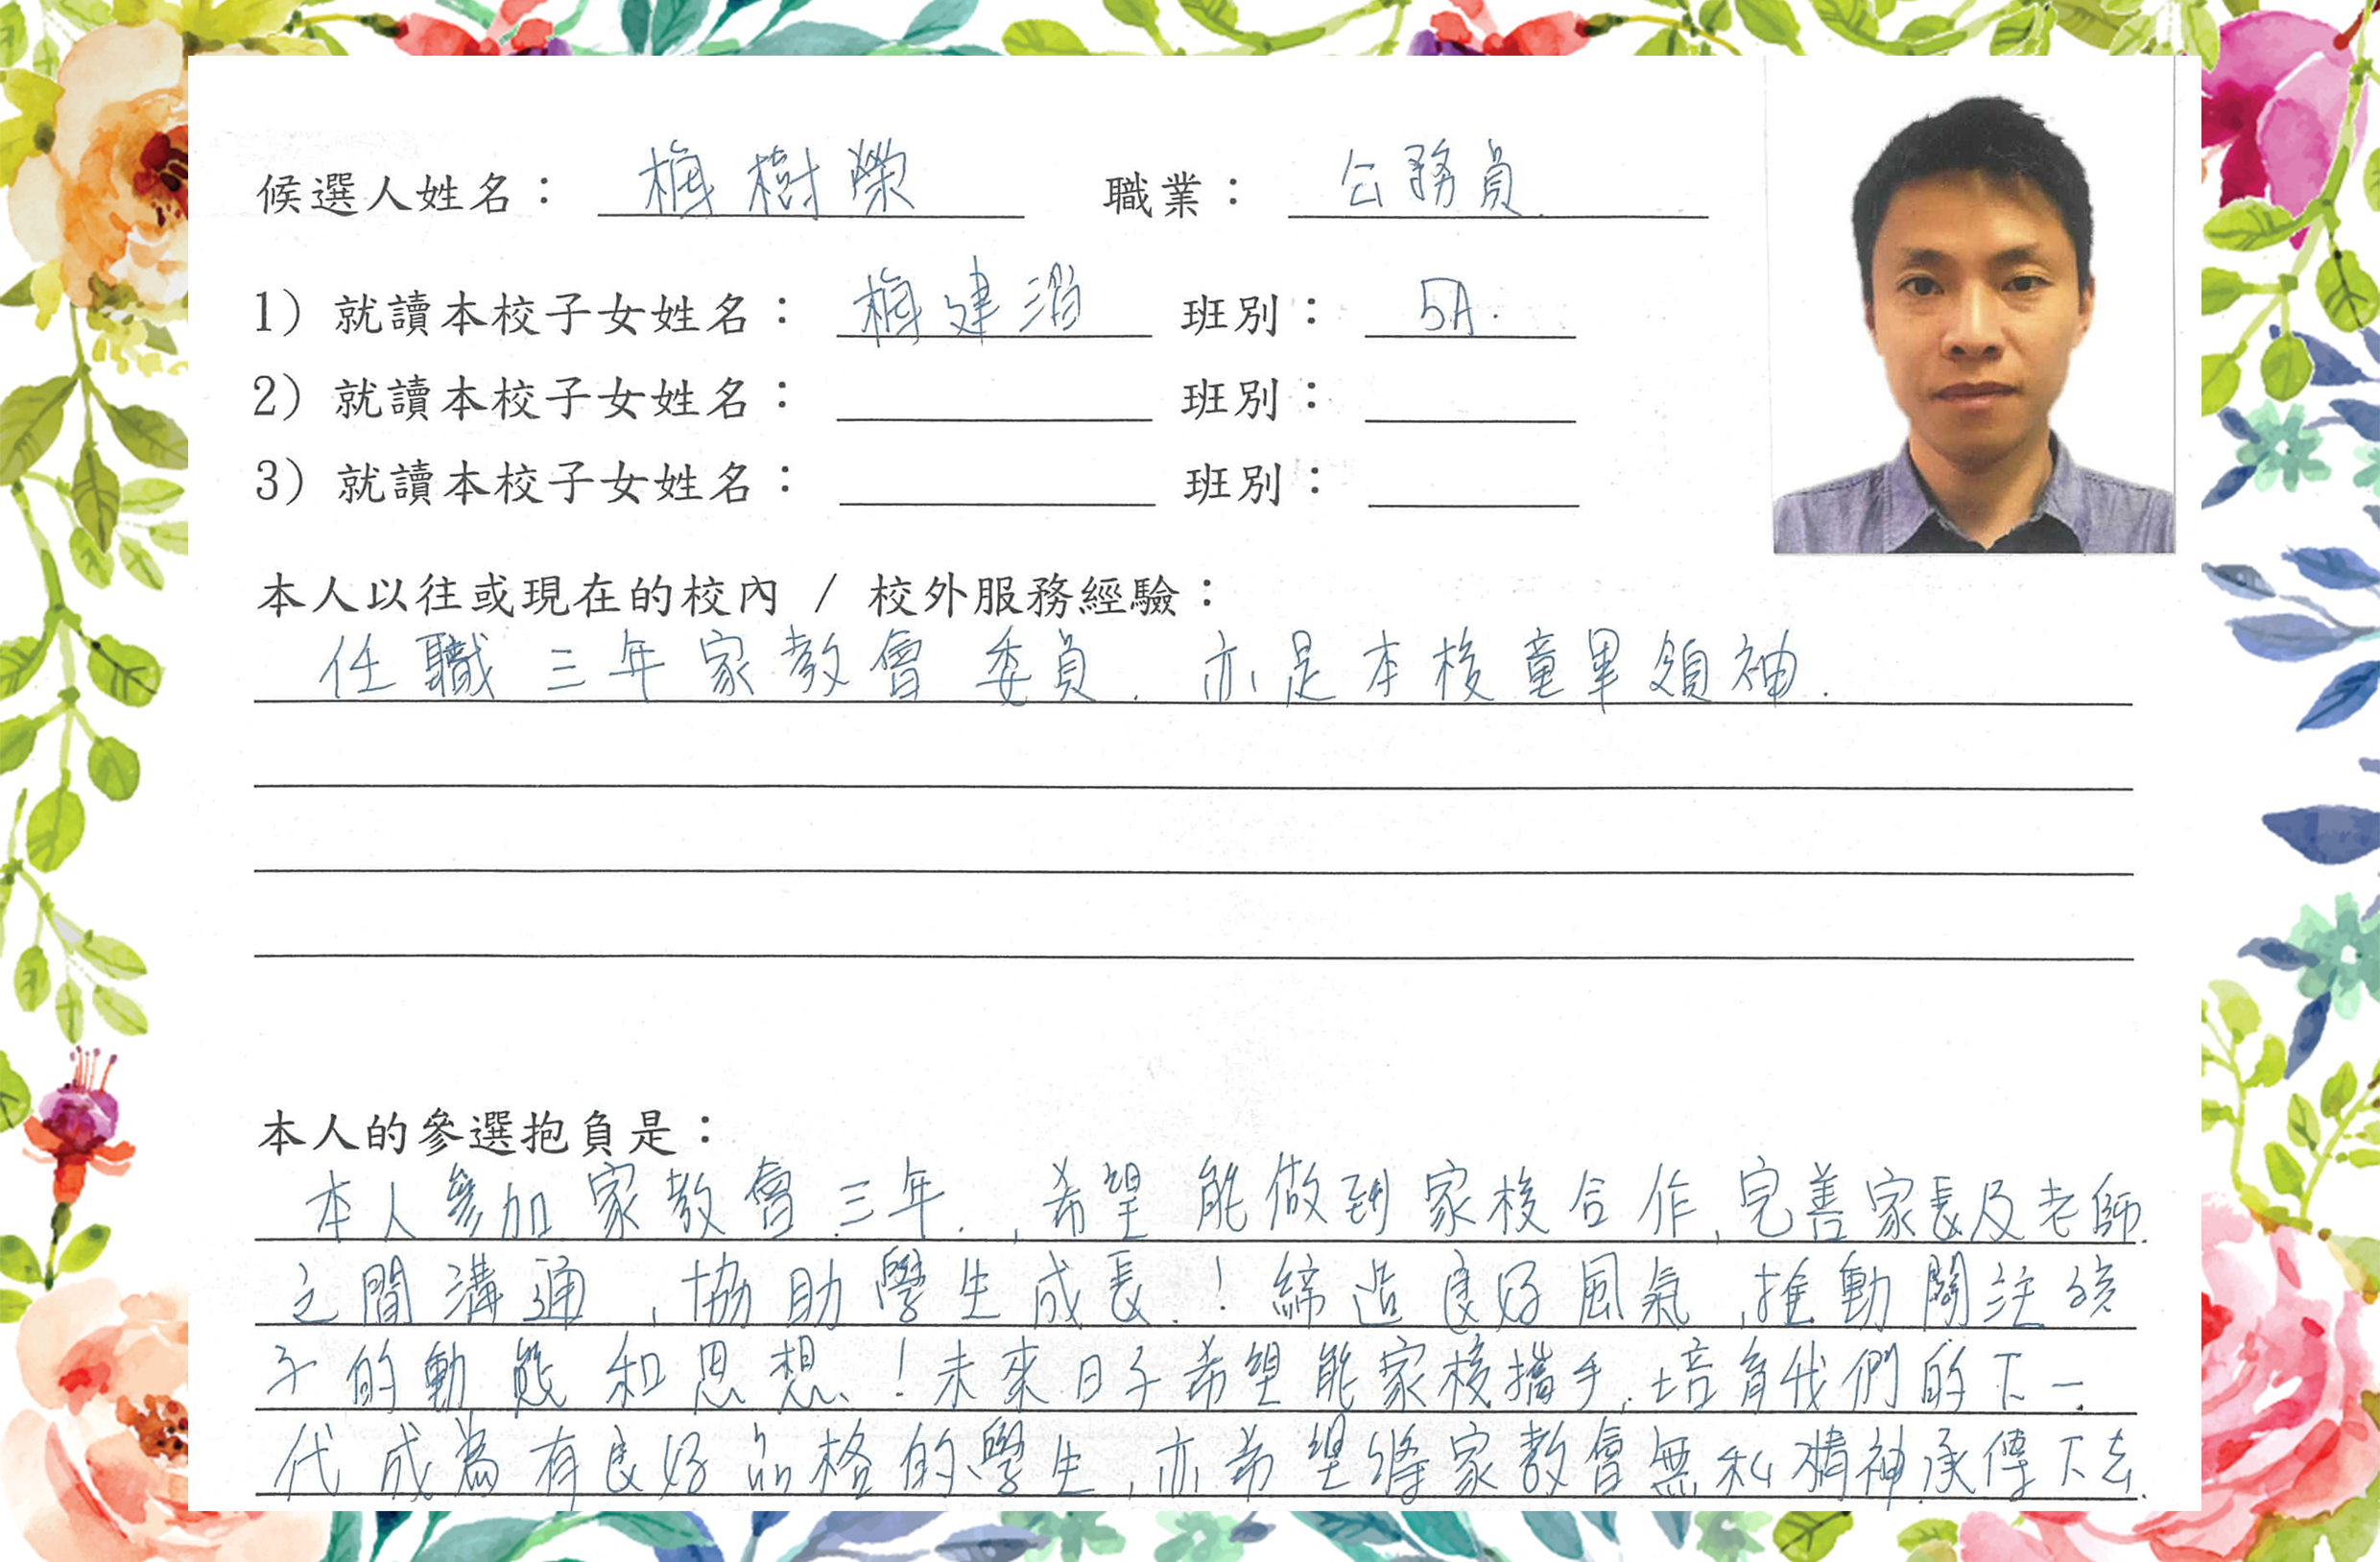 候選人姓名： 梅樹榮 職業： 公務員.
1) 就讀本校子女姓名： 梅建滔 班別： 5A.
2) 就讀本校子女姓名： 班別：
3) 就讀本校子女姓名： 班別：
本人以往或現在的校內 / 校外服務經驗：
任職三年家教會委員. 亦是本校童軍領袖.
本人的參選抱負是：
本人參加家教會三年.,希望能做到家校合作,完善家長及老師
之間溝通,協助學生成長.！締造良好風氣,推動關注孩
子的動態和思想！未來日子希望能家校攜手,培育我們的下一
代成為有良好品格的學生,亦希望將家教會無私精神承傳下去.